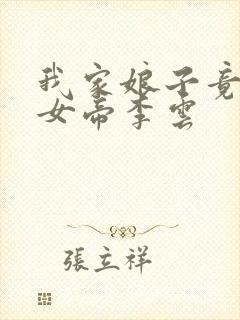 我家娘子竟
女帝李雲
張立祥